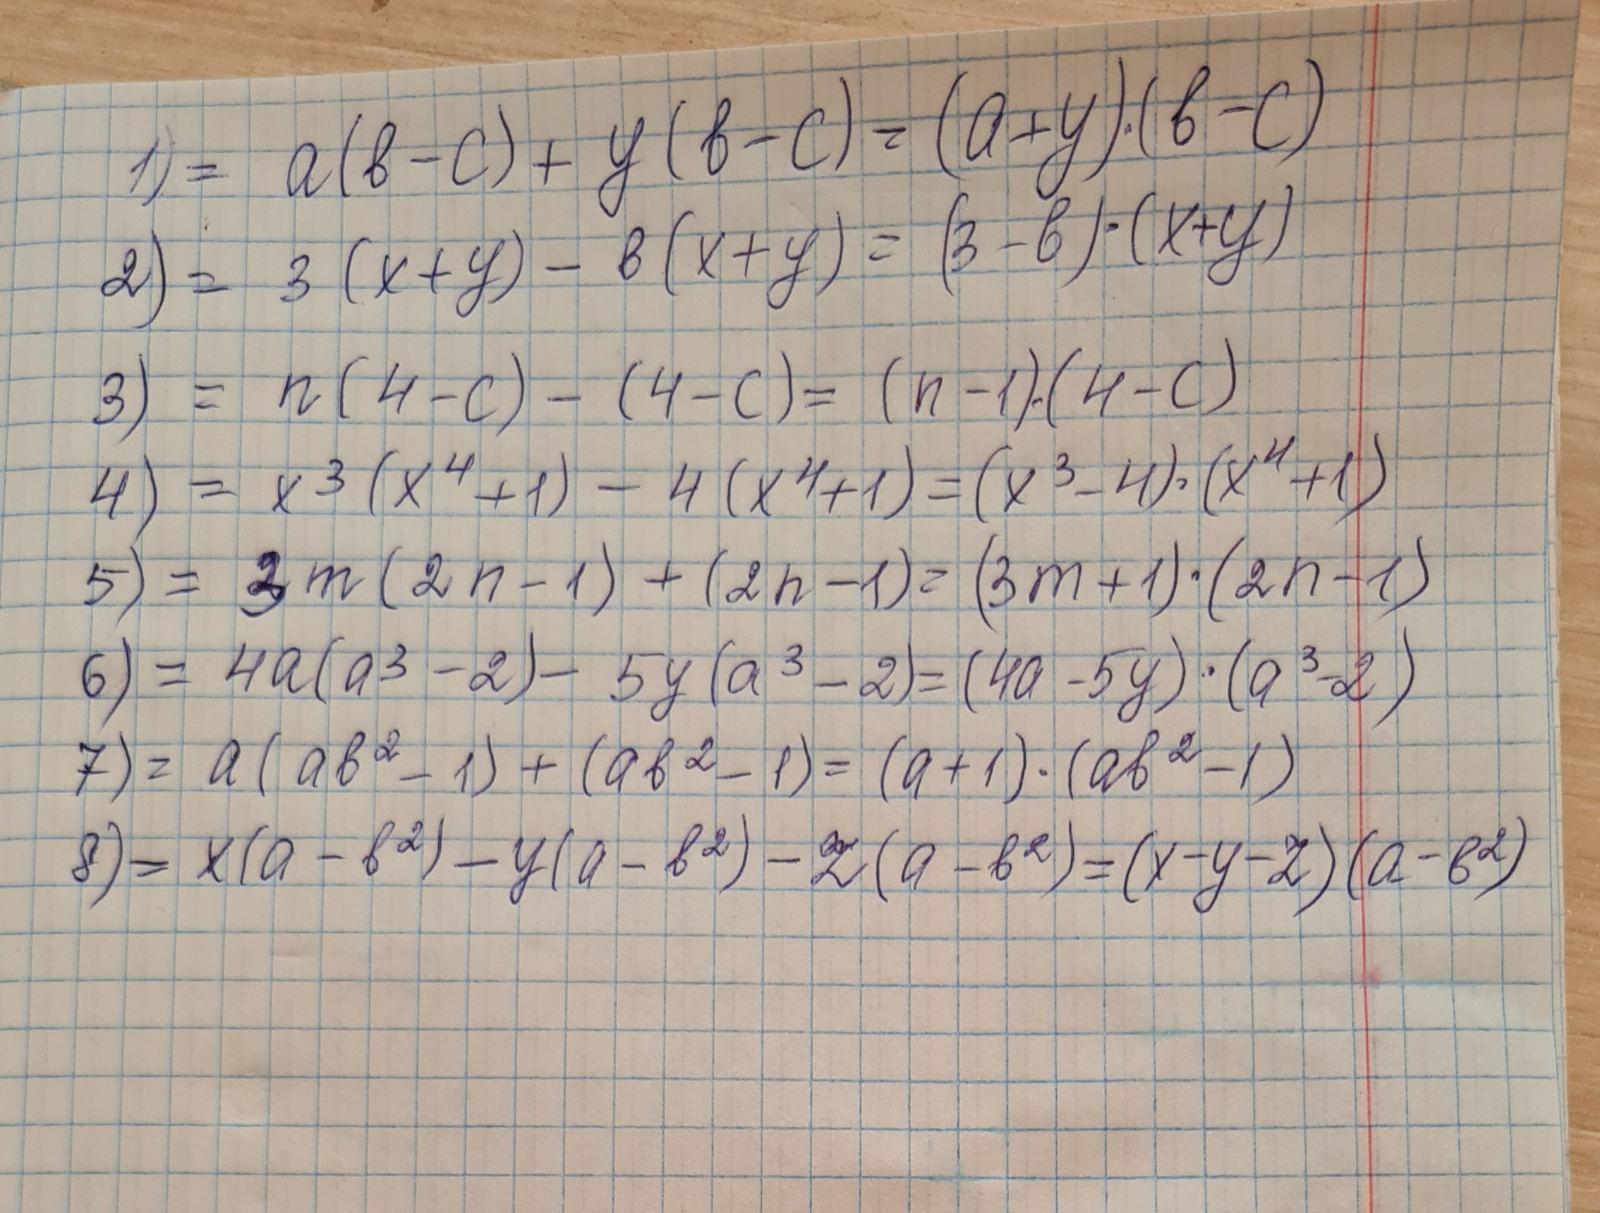 1) = a(b-c) + y(b-c) = (a+y)·(b-c)
2) = 3(x+y) - b(x+y) = (3-b)·(x+y)
3) = n(4-c) - (4-c) = (n-1)·(4-c)
4) = x³(x⁴+1) - 4(x⁴+1) = (x³-4)·(x⁴+1)
5) = 3m(2n-1) + (2n-1) = (3m+1)·(2n-1)
6) = 4a(a³-2) - 5y(a³-2) = (4a-5y)·(a³-2)
7) = a(ab²-1) + (ab²-1) = (a+1)·(ab²-1)
8) = x(a-b²) - y(a-b²) - z(a-b²) = (x-y-z)(a-b²)